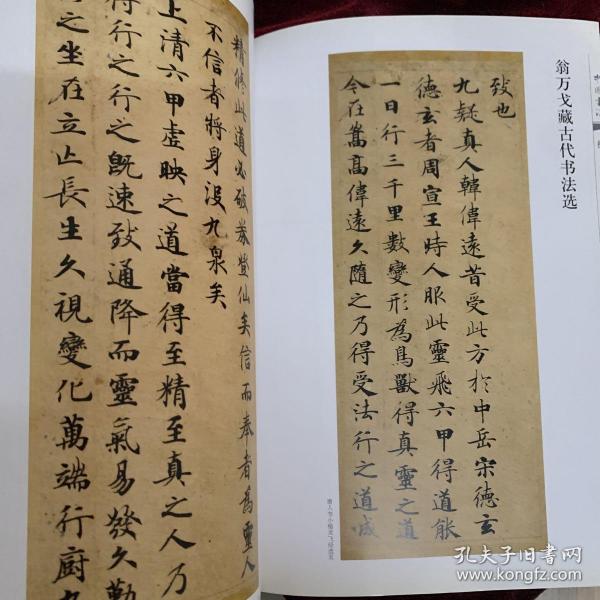 翁万戈藏古代书法选
致也
九疑真人韓偉遠昔受此方於中岳宋德玄
德玄者周宣王時人服此靈飛六甲得道能
一日行三千里數變形為鳥獸得真靈之道
今在嵩高偉遠久隨之乃得受法行之道成
精修此道必破券登仙矣信而奉者為靈人
不信者將身没九泉矣
上清六甲虛映之道當得至精至真之人乃
得行之行之既速致通降而靈氣易發久勤
之坐在立亡長生久視變化萬端行廚
孔夫子旧书网
www.kongfz.com